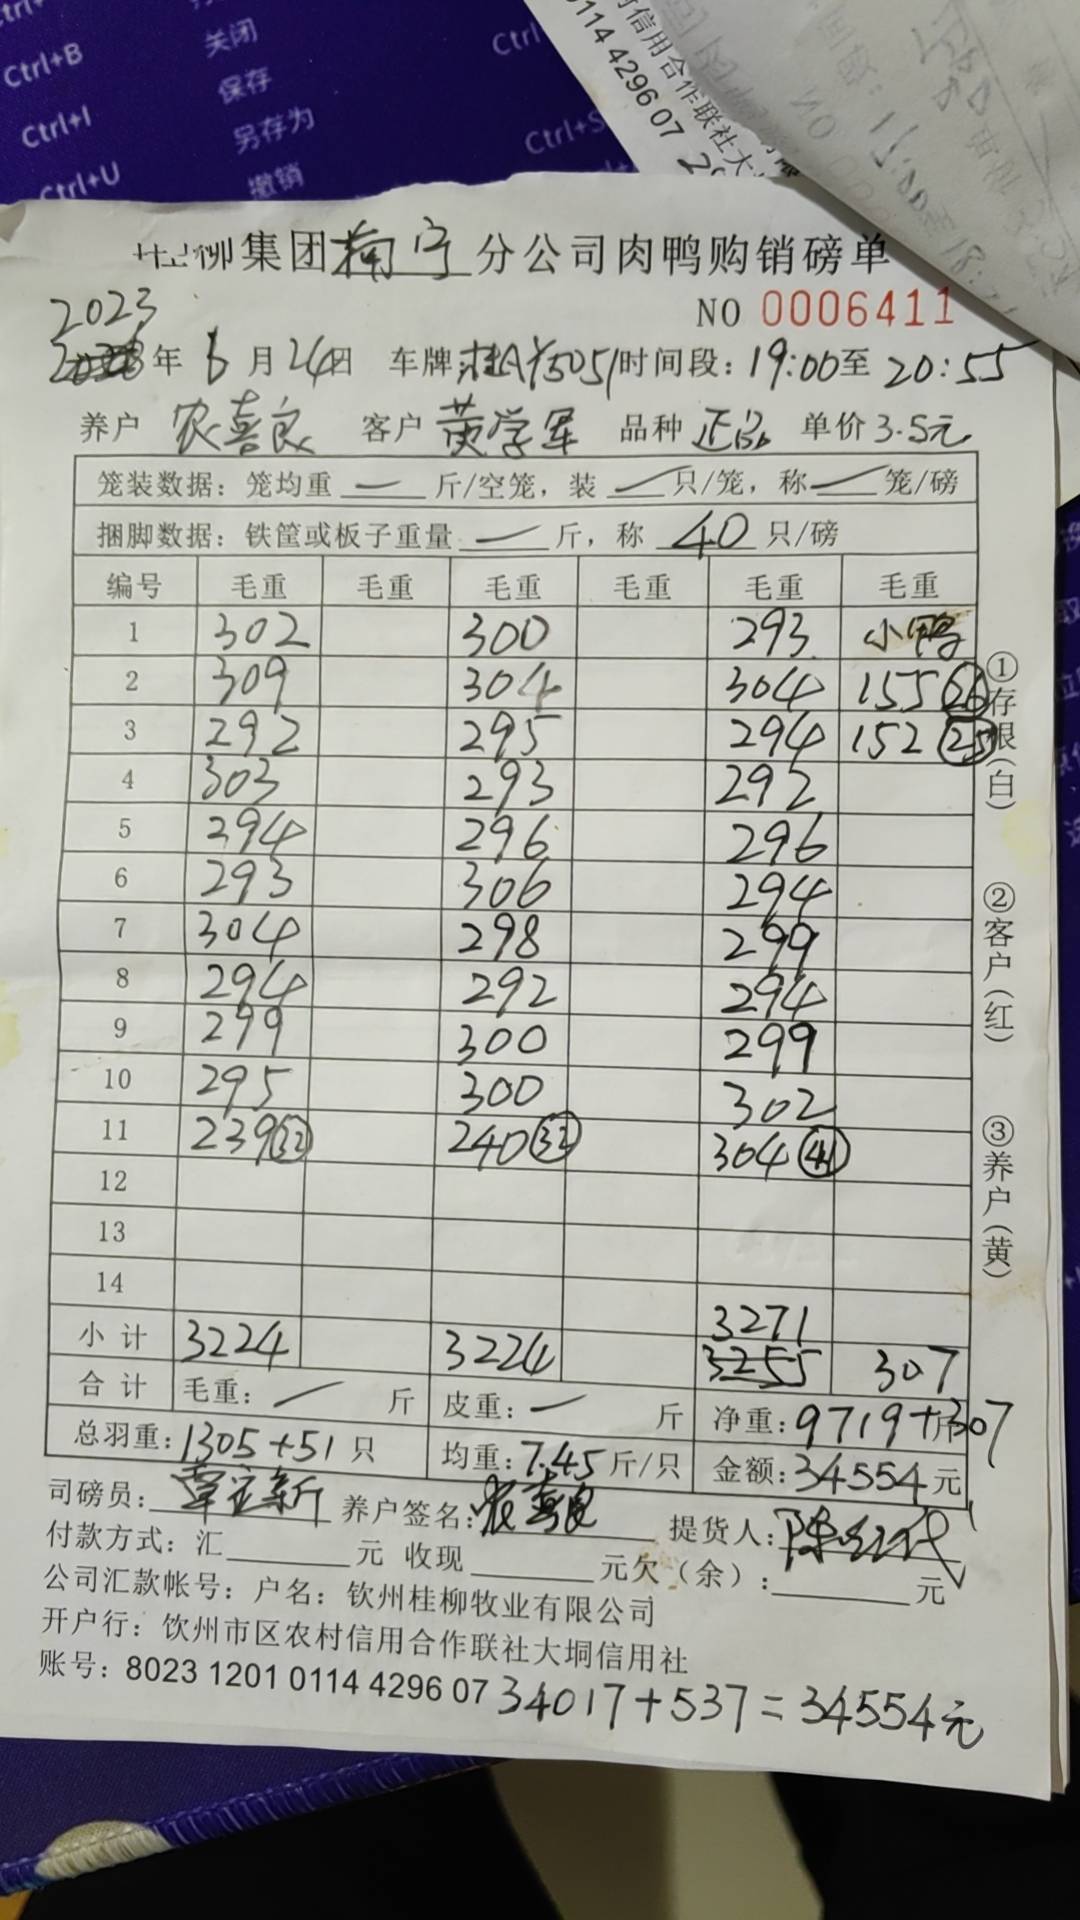 Ctrl+B 关闭 Ctrl
保存
Ctrl+I 另存为 Ctrl+S
Ctrl+U 撤销
信用合作联社大
0114 4296 07
桂柳集团南宁分公司肉鸭购销磅单
NO 0006411
2023
年6月24日 车牌桂AY5051时间段:19:00至20:55
养户 农喜良 客户 黄学军 品种 正品 单价3.5元
笼装数据:笼均重 一 斤/空笼,装 一 只/笼,称 一 笼/磅
捆脚数据:铁筐或板子重量 一 斤,称 40 只/磅
编号 毛重 毛重 毛重 毛重 毛重 毛重
1 302 300 293 小鸭
2 309 304 304 155 26
3 292 295 294 152 25
4 303 293 292
5 294 296 296
6 293 306 294
7 304 298 299
8 294 292 294
9 299 300 299
10 295 300 302
11 239 32 240 32 304 41
12
13
14
3271
小计 3224 3224 3255 307
合计 毛重: 一 斤 皮重: 一 斤 净重:9719+307斤
总羽重:1305+51只 均重:7.45斤/只 金额:34554元
司磅员: 覃定新 养户签名:农喜良 提货人:
付款方式:汇 元 收现 元欠(余): 元
公司汇款帐号:户名:钦州桂柳牧业有限公司
开户行:饮州市区农村信用合作联社大垌信用社
账号:8023 1201 0114 4296 07 34017+537=34554元
①存根(白)
②客户(红)
③养户(黄)